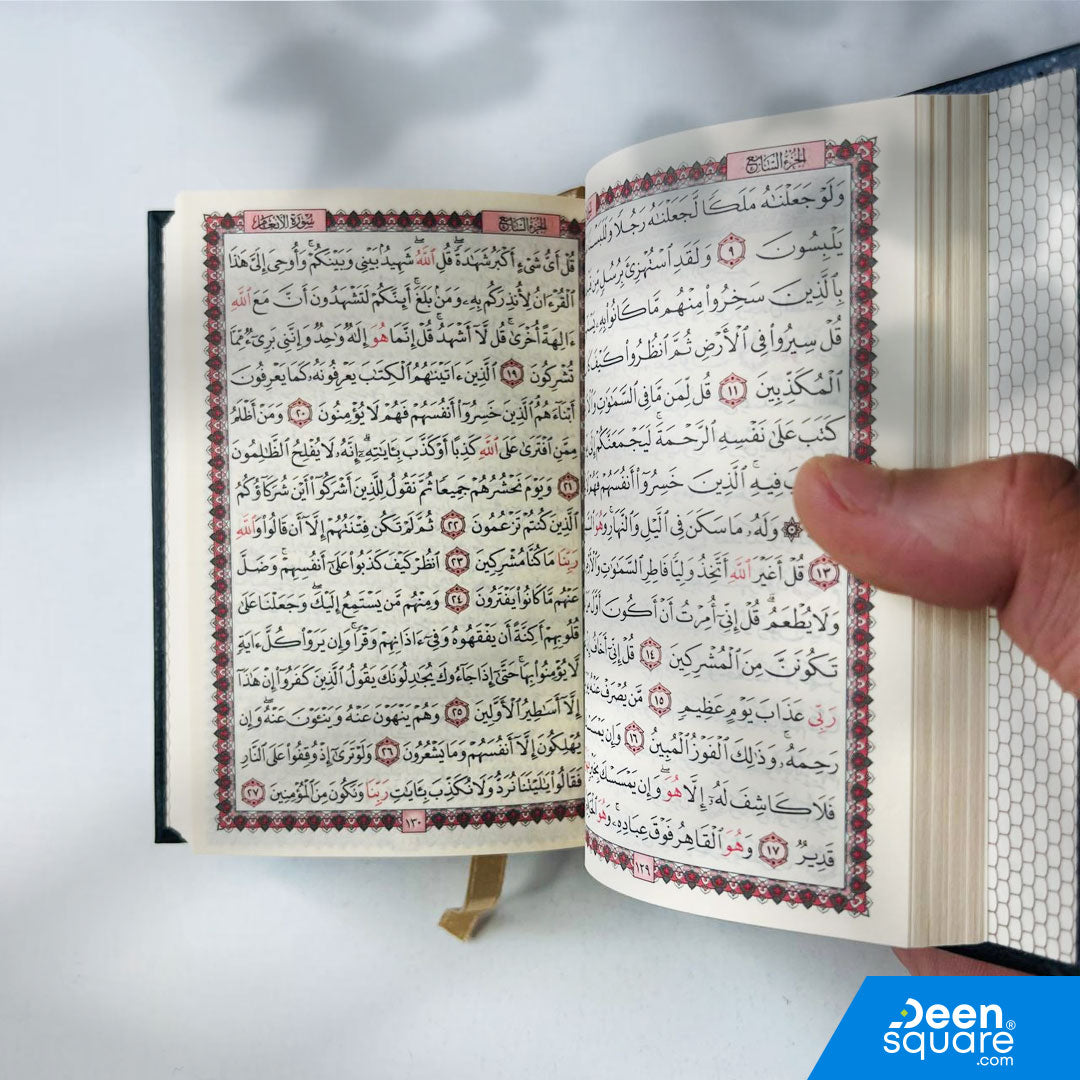 الجزء السابع
وَلَوْ جَعَلْنَٰهُ مَلَكًا لَّجَعَلْنَٰهُ رَجُلًا
يَلْبِسُونَ ٩ وَلَقَدِ ٱسْتُهْزِئَ بِرُسُلٍ مِّن
بِٱلَّذِينَ سَخِرُوا۟ مِنْهُم مَّا كَانُوا۟ بِهِۦ
قُلْ سِيرُوا۟ فِى ٱلْأَرْضِ ثُمَّ ٱنظُرُوا۟ كَيْفَ
ٱلْمُكَذِّبِينَ ١١ قُل لِّمَن مَّا فِى ٱلسَّمَٰوَٰتِ
كَتَبَ عَلَىٰ نَفْسِهِ ٱلرَّحْمَةَ لَيَجْمَعَنَّكُمْ
فِيهِ ٱلَّذِينَ خَسِرُوٓا۟ أَنفُسَهُمْ
وَلَهُۥ مَا سَكَنَ فِى ٱلَّيْلِ وَٱلنَّهَارِ وَهُوَ
١٣ قُلْ أَغَيْرَ ٱللَّهِ أَتَّخِذُ وَلِيًّا فَاطِرِ ٱلسَّمَٰوَٰتِ
وَلَا يُطْعَمُ قُلْ إِنِّىٓ أُمِرْتُ أَنْ أَكُونَ أَوَّلَ
تَكُونَنَّ مِنَ ٱلْمُشْرِكِينَ ١٤ قُلْ إِنِّىٓ أَخَافُ
رَبِّى عَذَابَ يَوْمٍ عَظِيمٍ ١٥ مَّن يُصْرَفْ عَنْهُ
رَحِمَهُۥ وَذَٰلِكَ ٱلْفَوْزُ ٱلْمُبِينُ ١٦ وَإِن
فَلَا كَاشِفَ لَهُۥٓ إِلَّا هُوَ وَإِن يَمْسَسْكَ
قَدِيرٌ ١٧ وَهُوَ ٱلْقَاهِرُ فَوْقَ عِبَادِهِۦ وَهُوَ
١٢٩
الجزء السابع
سورة الأنعام
قُلْ أَىُّ شَىْءٍ أَكْبَرُ شَهَٰدَةً قُلِ ٱللَّهُ شَهِيدٌۢ بَيْنِى وَبَيْنَكُمْ وَأُوحِىَ إِلَىَّ هَٰذَا
ٱلْقُرْءَانُ لِأُنذِرَكُم بِهِۦ وَمَنۢ بَلَغَ أَئِنَّكُمْ لَتَشْهَدُونَ أَنَّ مَعَ ٱللَّهِ
ءَالِهَةً أُخْرَىٰ قُل لَّآ أَشْهَدُ قُلْ إِنَّمَا هُوَ إِلَٰهٌ وَٰحِدٌ وَإِنَّنِى بَرِىٓءٌ مِّمَّا
تُشْرِكُونَ ١٩ ٱلَّذِينَ ءَاتَيْنَٰهُمُ ٱلْكِتَٰبَ يَعْرِفُونَهُۥ كَمَا يَعْرِفُونَ
أَبْنَآءَهُمُ ٱلَّذِينَ خَسِرُوٓا۟ أَنفُسَهُمْ فَهُمْ لَا يُؤْمِنُونَ ٢٠ وَمَنْ أَظْلَمُ
مِمَّنِ ٱفْتَرَىٰ عَلَى ٱللَّهِ كَذِبًا أَوْ كَذَّبَ بِـَٔايَٰتِهِۦٓ إِنَّهُۥ لَا يُفْلِحُ ٱلظَّٰلِمُونَ
٢١ وَيَوْمَ نَحْشُرُهُمْ جَمِيعًا ثُمَّ نَقُولُ لِلَّذِينَ أَشْرَكُوٓا۟ أَيْنَ شُرَكَآؤُكُمُ
ٱلَّذِينَ كُنتُمْ تَزْعُمُونَ ٢٢ ثُمَّ لَمْ تَكُن فِتْنَتُهُمْ إِلَّآ أَن قَالُوا۟ وَٱللَّهِ
رَبِّنَا مَا كُنَّا مُشْرِكِينَ ٢٣ ٱنظُرْ كَيْفَ كَذَبُوا۟ عَلَىٰٓ أَنفُسِهِمْ وَضَلَّ
عَنْهُم مَّا كَانُوا۟ يَفْتَرُونَ ٢٤ وَمِنْهُم مَّن يَسْتَمِعُ إِلَيْكَ وَجَعَلْنَا عَلَىٰ
قُلُوبِهِمْ أَكِنَّةً أَن يَفْقَهُوهُ وَفِىٓ ءَاذَانِهِمْ وَقْرًا وَإِن يَرَوْا۟ كُلَّ ءَايَةٍ
لَّا يُؤْمِنُوا۟ بِهَا حَتَّىٰٓ إِذَا جَآءُوكَ يُجَٰدِلُونَكَ يَقُولُ ٱلَّذِينَ كَفَرُوٓا۟ إِنْ هَٰذَآ
إِلَّآ أَسَٰطِيرُ ٱلْأَوَّلِينَ ٢٥ وَهُمْ يَنْهَوْنَ عَنْهُ وَيَنْـَٔوْنَ عَنْهُ وَإِن
يُهْلِكُونَ إِلَّآ أَنفُسَهُمْ وَمَا يَشْعُرُونَ ٢٦ وَلَوْ تَرَىٰٓ إِذْ وُقِفُوا۟ عَلَى ٱلنَّارِ
فَقَالُوا۟ يَٰلَيْتَنَا نُرَدُّ وَلَا نُكَذِّبَ بِـَٔايَٰتِ رَبِّنَا وَنَكُونَ مِنَ ٱلْمُؤْمِنِينَ ٢٧
١٣٠
Deen
square®
.com